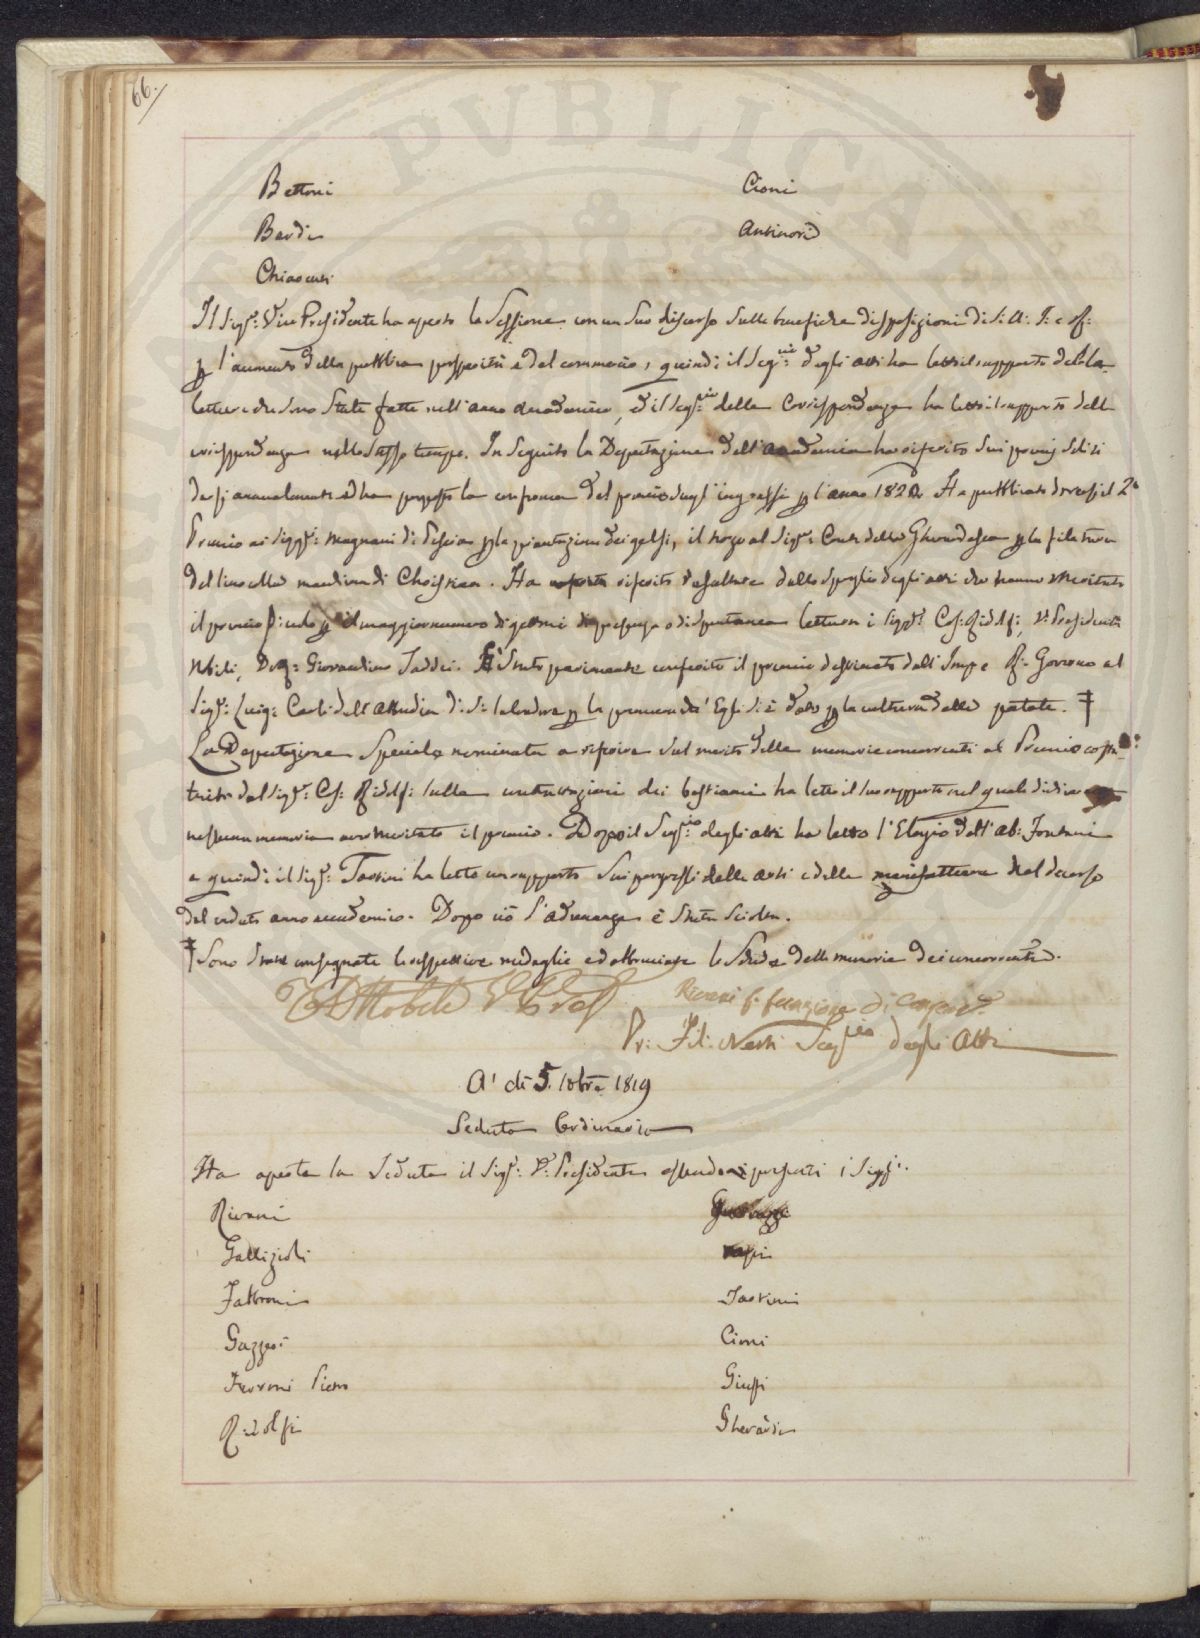 66.
Bettoni Cioni
Bardi Antinori
Chiarenti
Il Sig.r Vice Presidente ha aperto la Sessione con un suo discorso sulle benefiche disposizioni di S. A. I. e R.
p l'aumento della pubblica prosperità e del commercio, quindi il Seg.rio degli atti ha letto il rapporto delle
letture che sono state fatte nell'anno accademico, ed il Seg.rio della Corrispondenza ha letto il rapporto della
corrispondenza nello stesso tempo. In seguito la Deputazione dell'accademia ha riferito sui premj soliti
darsi annualmente ed ha proposto la conferma del premio sugl'ingrassi p l'anno 1820. Ha pubblicato doversi il 2.o
Premio ai Sigg.ri Magnani di Pescia p la piantazione dei gelsi, il terzo al Sig.r Conte della Gherardesca p la filatura
del lino colla macchina di Christian. Ha riferito resultare dallo spoglio degli atti che hanno meritato
il premio p il maggior numero di gettoni di presenza o di spontanea lettura i Sigg.ri Cos. Ridolfi, V. Presidente
Nobili, Dott. Giovacchino Taddei. È stato parimente conferito il premio destinato dall'Imp e R. Governo al
Sig.r Luigi Carli dell'Abbadia di S. Salvadore p la premura ch'Egli si è dato p la cultura delle patate. ‡
La Deputazione Speciale nominata a riferire sul merito delle memorie concorrenti al Premio
dal Sig.r Cos. Ridolfi sulla dei bestiami ha letto il suo rapporto nel quale dichiara
nessuna memoria aver meritato il premio. Dopo il Seg.rio degli atti ha letto l'Elogio dell'Ab. Fontani
e quindi il Sig.r Tartini ha letto un rapporto sui progressi delle arti e delle manifatture nel decorso
del caduto anno accademico. Dopo ciò l'adunanza è stata sciolta.
‡ Sono state consegnate le respettive medaglie ed abbruciate le schede delle memorie dei concorrenti.
Nobili V. Pres. Rivani f. funzione di Corrisp.
Pr. Fil. Nesti Seg.rio degli Atti
A' dì 5. 10bre 1819
Seduta Ordinaria
Ha aperta la Seduta il Sig.r V. Presidente essendo presenti i Sigg.ri
Rivani
Gallizioli
Fabbroni Tartini
Gazzeri Cioni
Ferroni Piero Giusti
Ridolfi Gherardi